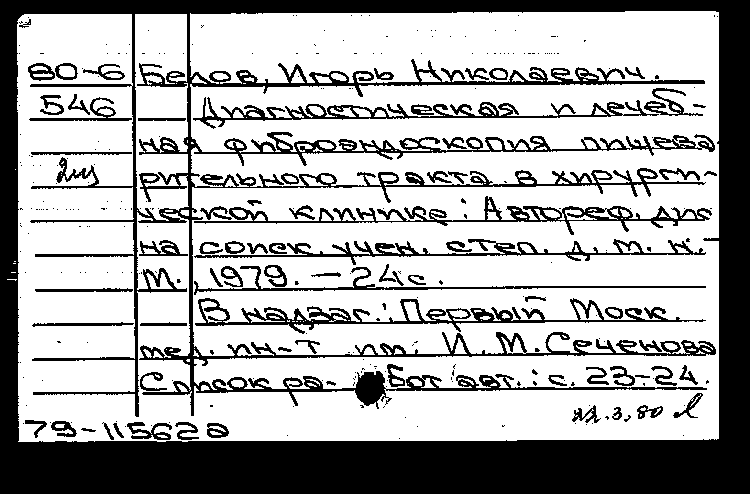 80-6 Белов, Игорь Николаевич.
546 Диагностическая и лечеб-
ная фиброэндоскопия пищева
рительного тракта в хирурги-
ческой клинике: Автореф. дис
на соиск. учен. степ. д. м. н.-
М., 1979. — 24 с.
В надзаг.: Первый Моск.
мед. ин-т им. И. М. Сеченова
Список ра- бот авт.: с. 23-24.
79-11562а